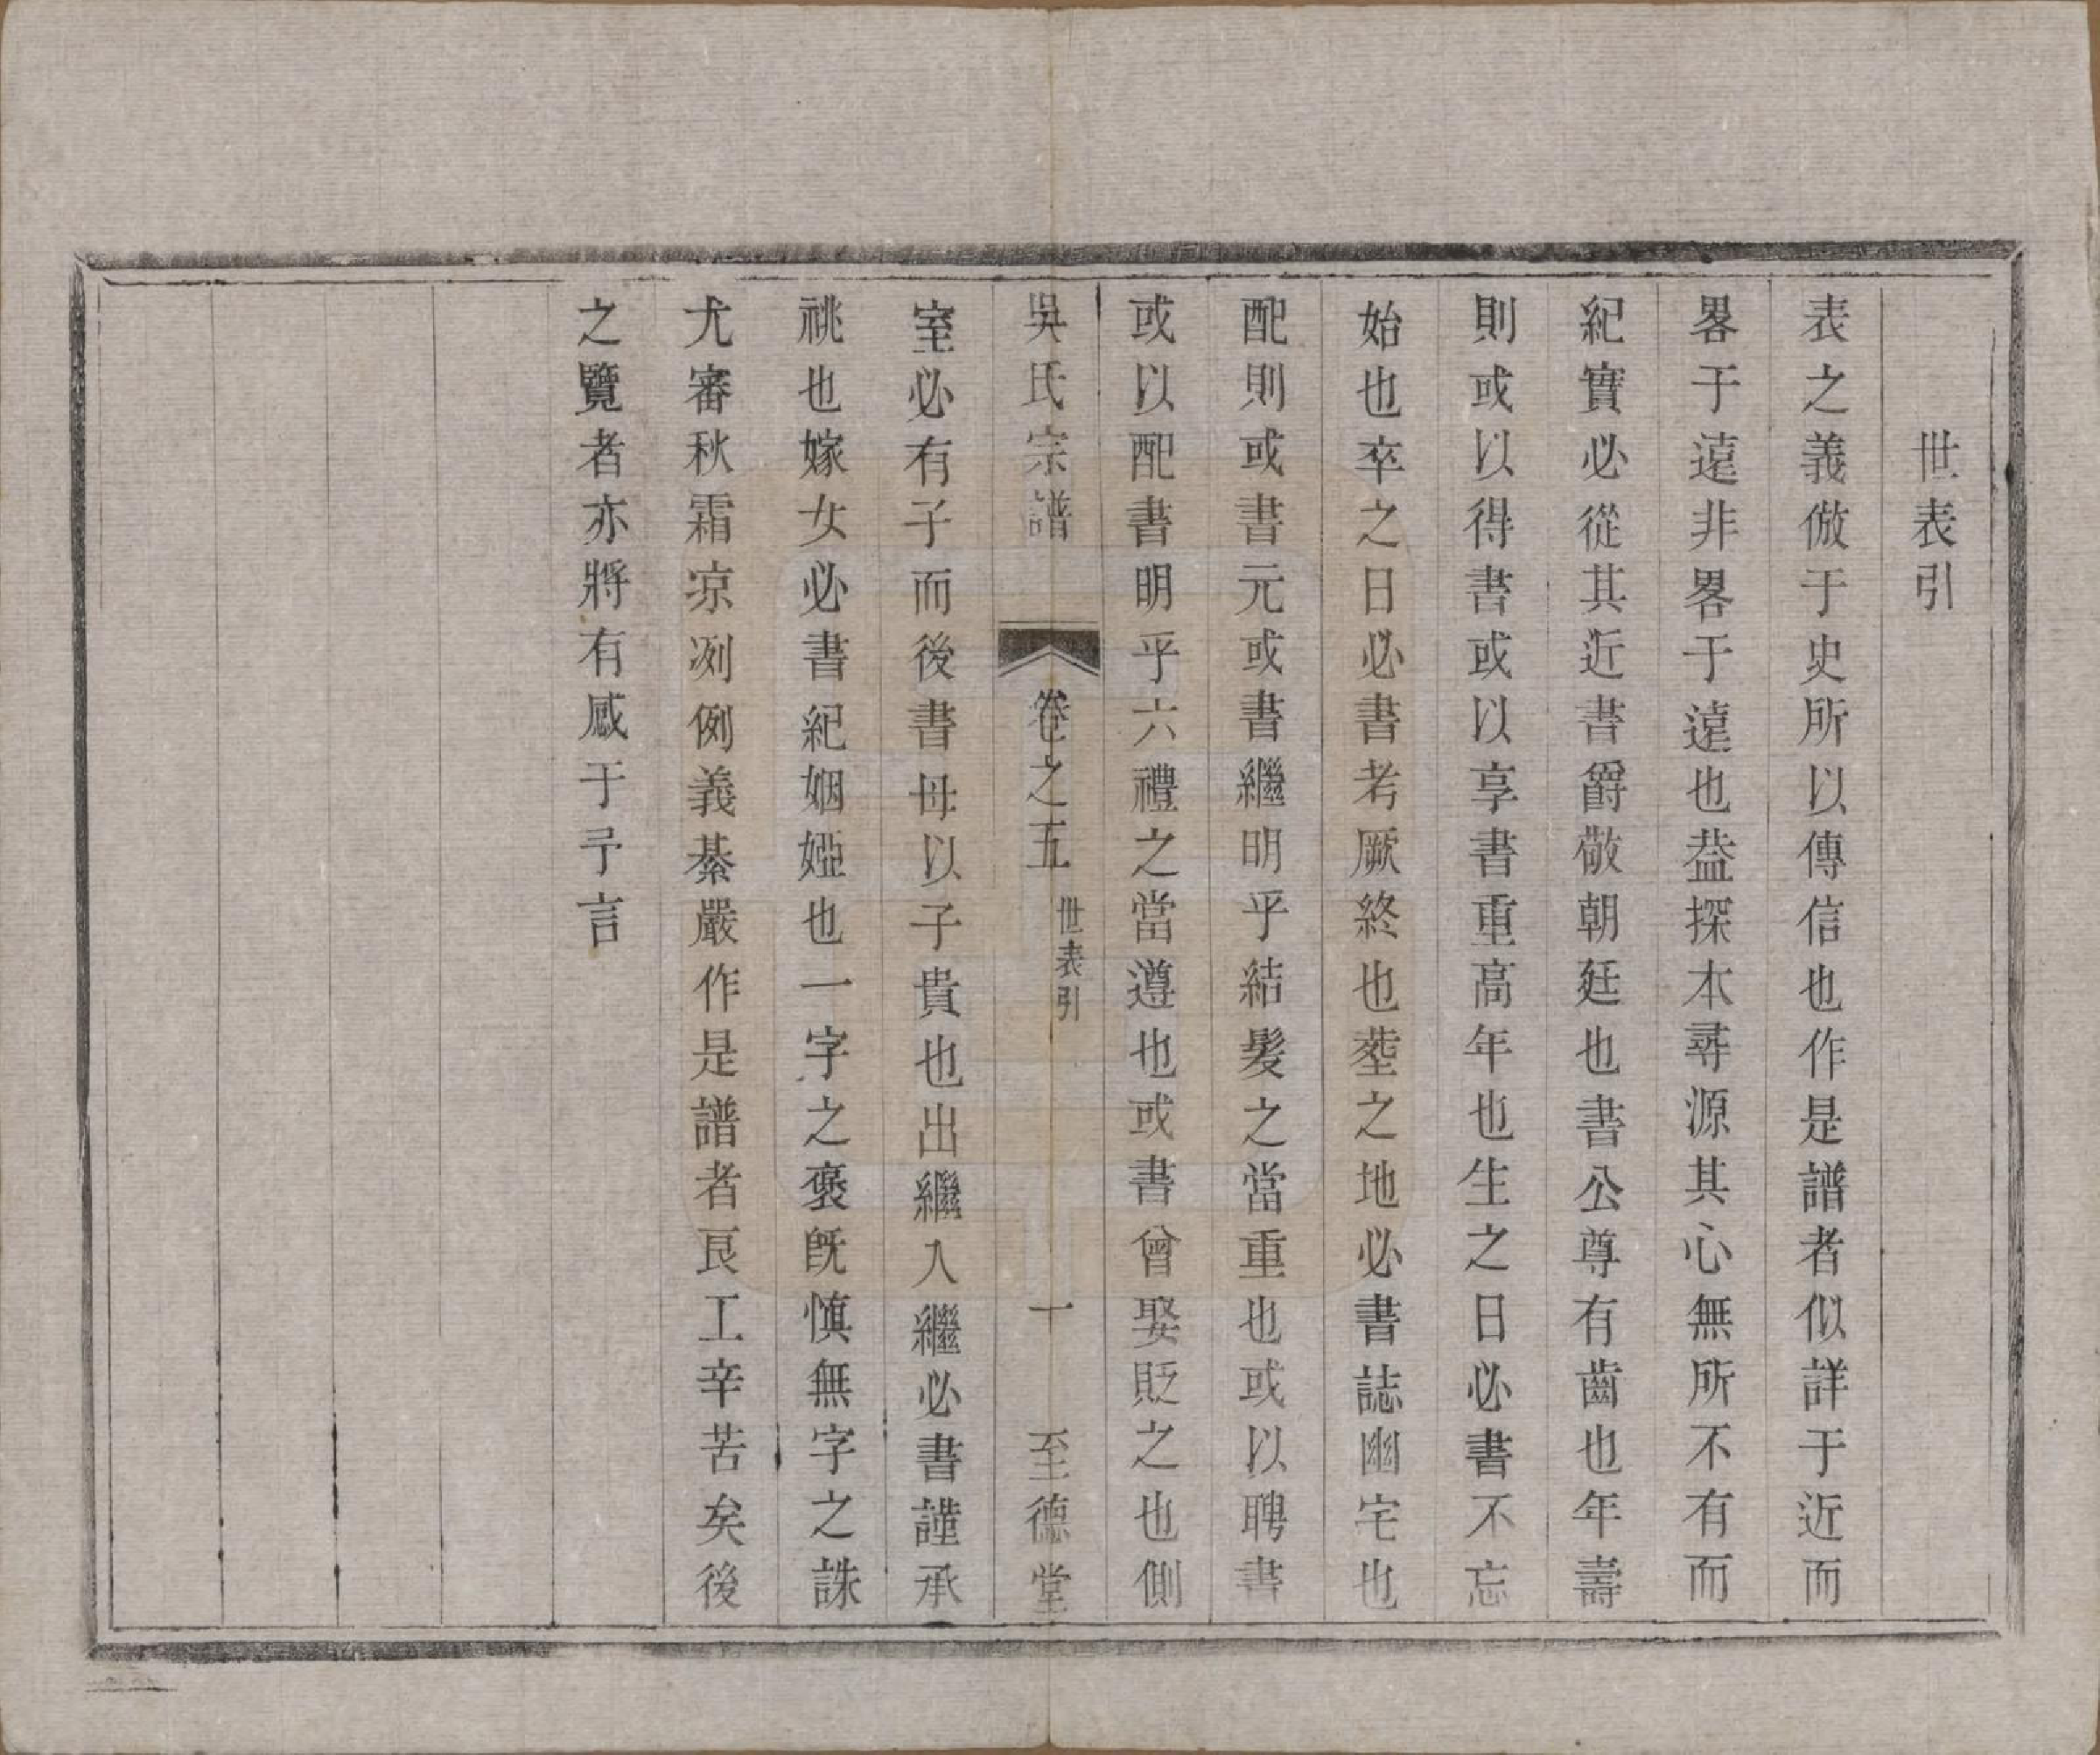 世表引
表之義倣于史所以傳信也作是譜者似詳于近而
畧于遠非畧于遠也葢探本尋源其心無所不有而
紀實必從其近書爵敬朝廷也書公尊有齒也年壽
則或以得書或以享書重高年也生之日必書不忘
始也卒之日必書考厥終也塟之地必書誌幽宅也
配則或書元或書繼明乎結髮之當重也或以聘書
或以配書明乎六禮之當遵也或書曾娶貶之也側
吳氏宗譜 卷之五 世表引 一 至德堂
室必有子而後書母以子貴也出繼入繼必書謹承
祧也嫁女必書紀姻婭也一字之褒旣慎無字之誅
尤審秋霜凉冽例義綦嚴作是譜者良工辛苦矣後
之覽者亦將有感于予言